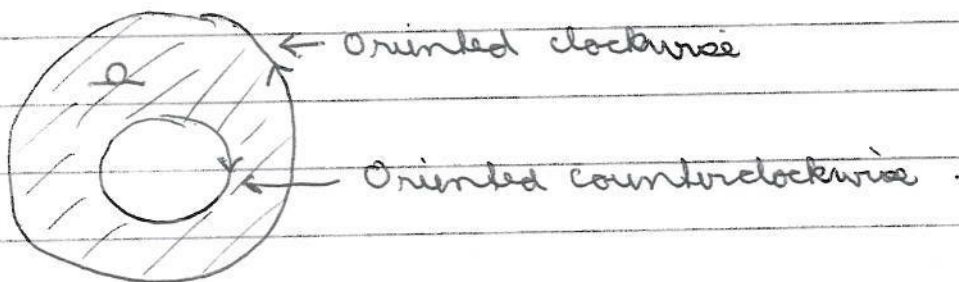 ← Oriented clockwise
Ω
← Oriented counterclockwise.